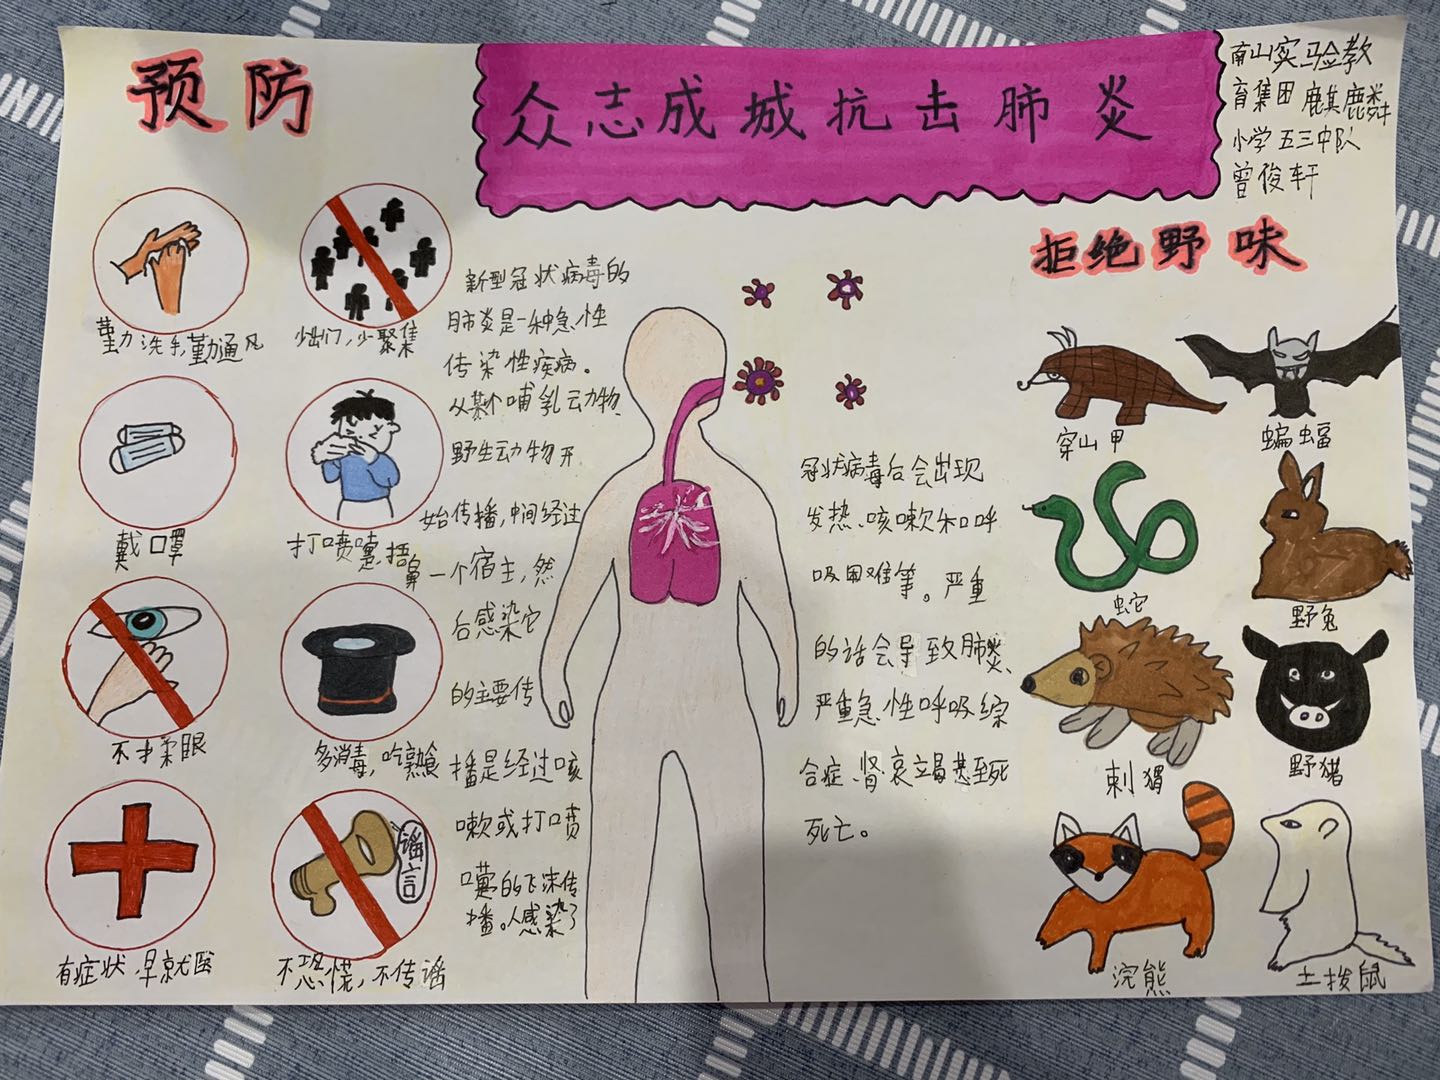 预防
众志成城抗击肺炎
南山实验教
育集团麒麟
小学五三中队
曾俊轩
勤洗手,勤通风
少出门,少聚集
戴口罩
打喷嚏,捂鼻
不揉眼
多消毒,吃熟食
有症状,早就医
不恐慌,不传谣
谣言
新型冠状病毒的
肺炎是一种急性
传染性疾病。
从某个哺乳动物、
野生动物开
始传播,中间经过
一个宿主,然
后感染它
的主要传
播是经过咳
嗽或打喷
嚏的飞沫传
播。人感染了
冠状病毒后会出现
发热、咳嗽和呼
吸困难等。严重
的话会导致肺炎、
严重急性呼吸综
合症、肾衰立曷甚至死
死亡。
拒绝野味
穿山甲
蝙蝠
蛇
野兔
刺猬
野猪
浣熊
土拨鼠